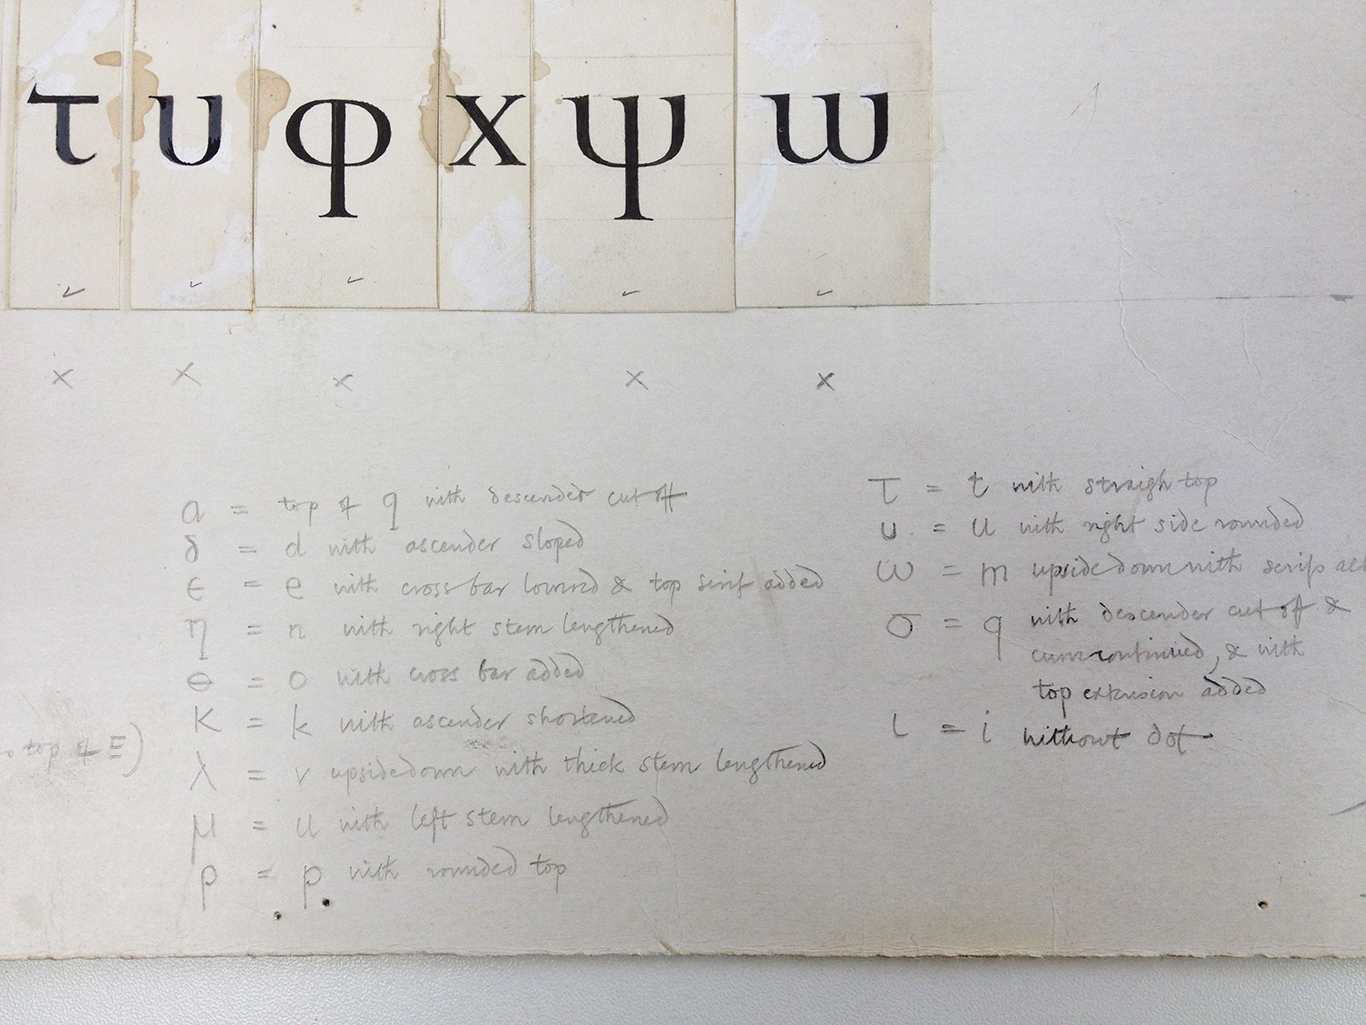 τ υ φ χ ψ ω
α = top of q with descender cut off
δ = d with ascender sloped
ϵ = e with cross bar lowered & top serif added
η = n with right stem lengthened
θ = o with cross bar added
κ = k with ascender shortened
top of E)
λ = v upsidedown with thick stem lengthened
μ = u with left stem lengthened
ρ = p with rounded top
τ = t with straigh top
υ = u with right side rounded
ω = m upsidedown with serifs
σ = q with descender cut off &
continued, & with
top extension added
ι = i without dot